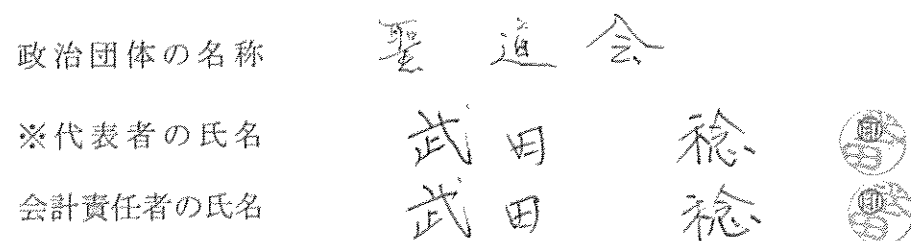 政治団体の名称 聖道会
※代表者の氏名 武田 稔
会計責任者の氏名 武田 稔